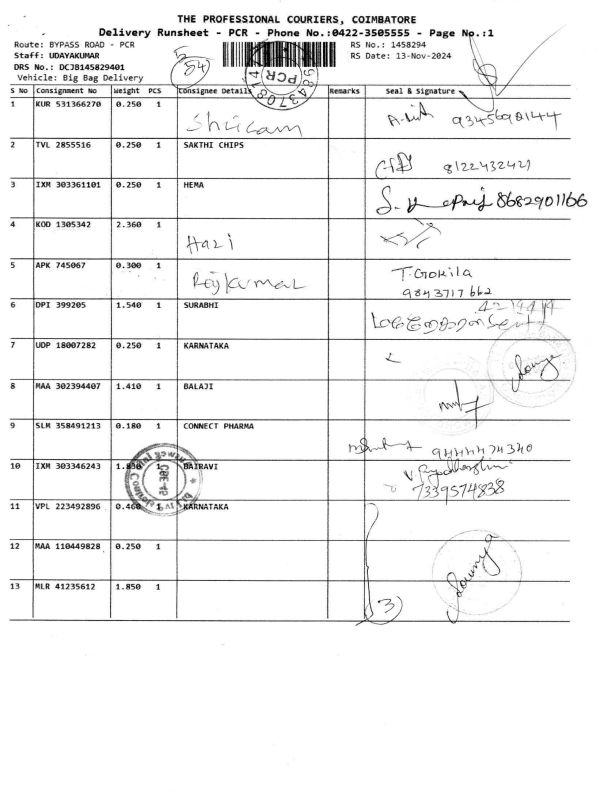 THE PROFESSIONAL COURIERS, COIMBATORE
Delivery Runsheet - PCR - Phone No.:0422-3505555 - Page No.:1
Route: BYPASS ROAD - PCR
Staff: UDAYAKUMAR
DRS No.: DCJB145829401
Vehicle: Big Bag Delivery
RS No.: 1458294
RS Date: 13-Nov-2024
54
PCR
S No Consignment No Weight PCS Consignee Details Remarks Seal & Signature
1 KUR 531366270 0.250 1 Shricam 9345690144
2 TVL 2855516 0.250 1 SAKTHI CHIPS 8122432421
3 IXM 303361101 0.250 1 HEMA 8682901166
4 KOD 1305342 2.360 1 Hari
5 APK 745067 0.300 1 Rajkumar T. Gokila
9843717662
6 DPI 399205 1.540 1 SURABHI
7 UDP 18007282 0.250 1 KARNATAKA Sowya
8 MAA 302394407 1.410 1 BALAJI
9 SLM 358491213 0.180 1 CONNECT PHARMA 9444474340
10 IXM 303346243 1.830 1 BAIRAVI 7339574838
11 VPL 223492896 0.460 1 KARNATAKA
12 MAA 110449828 0.250 1 Sowya
13 MLR 41235612 1.850 1 3